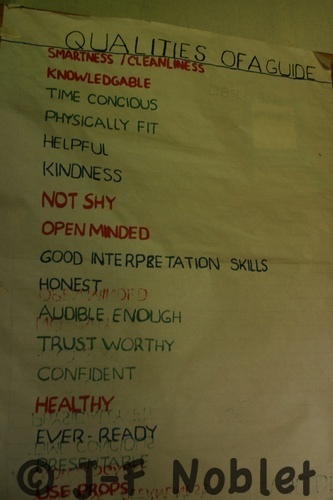 QUALITIES OF A GUIDE
SMARTNESS / CLEANLINESS
KNOWLEDGABLE
TIME CONCIOUS
PHYSICALLY FIT
HELPFUL
KINDNESS
NOT SHY
OPEN MINDED
GOOD INTERPRETATION SKILLS
HONEST
AUDIBLE ENOUGH
TRUST WORTHY
CONFIDENT
HEALTHY
EVER-READY
PRESENTABLE
USE PROPS
© J-F Noblet